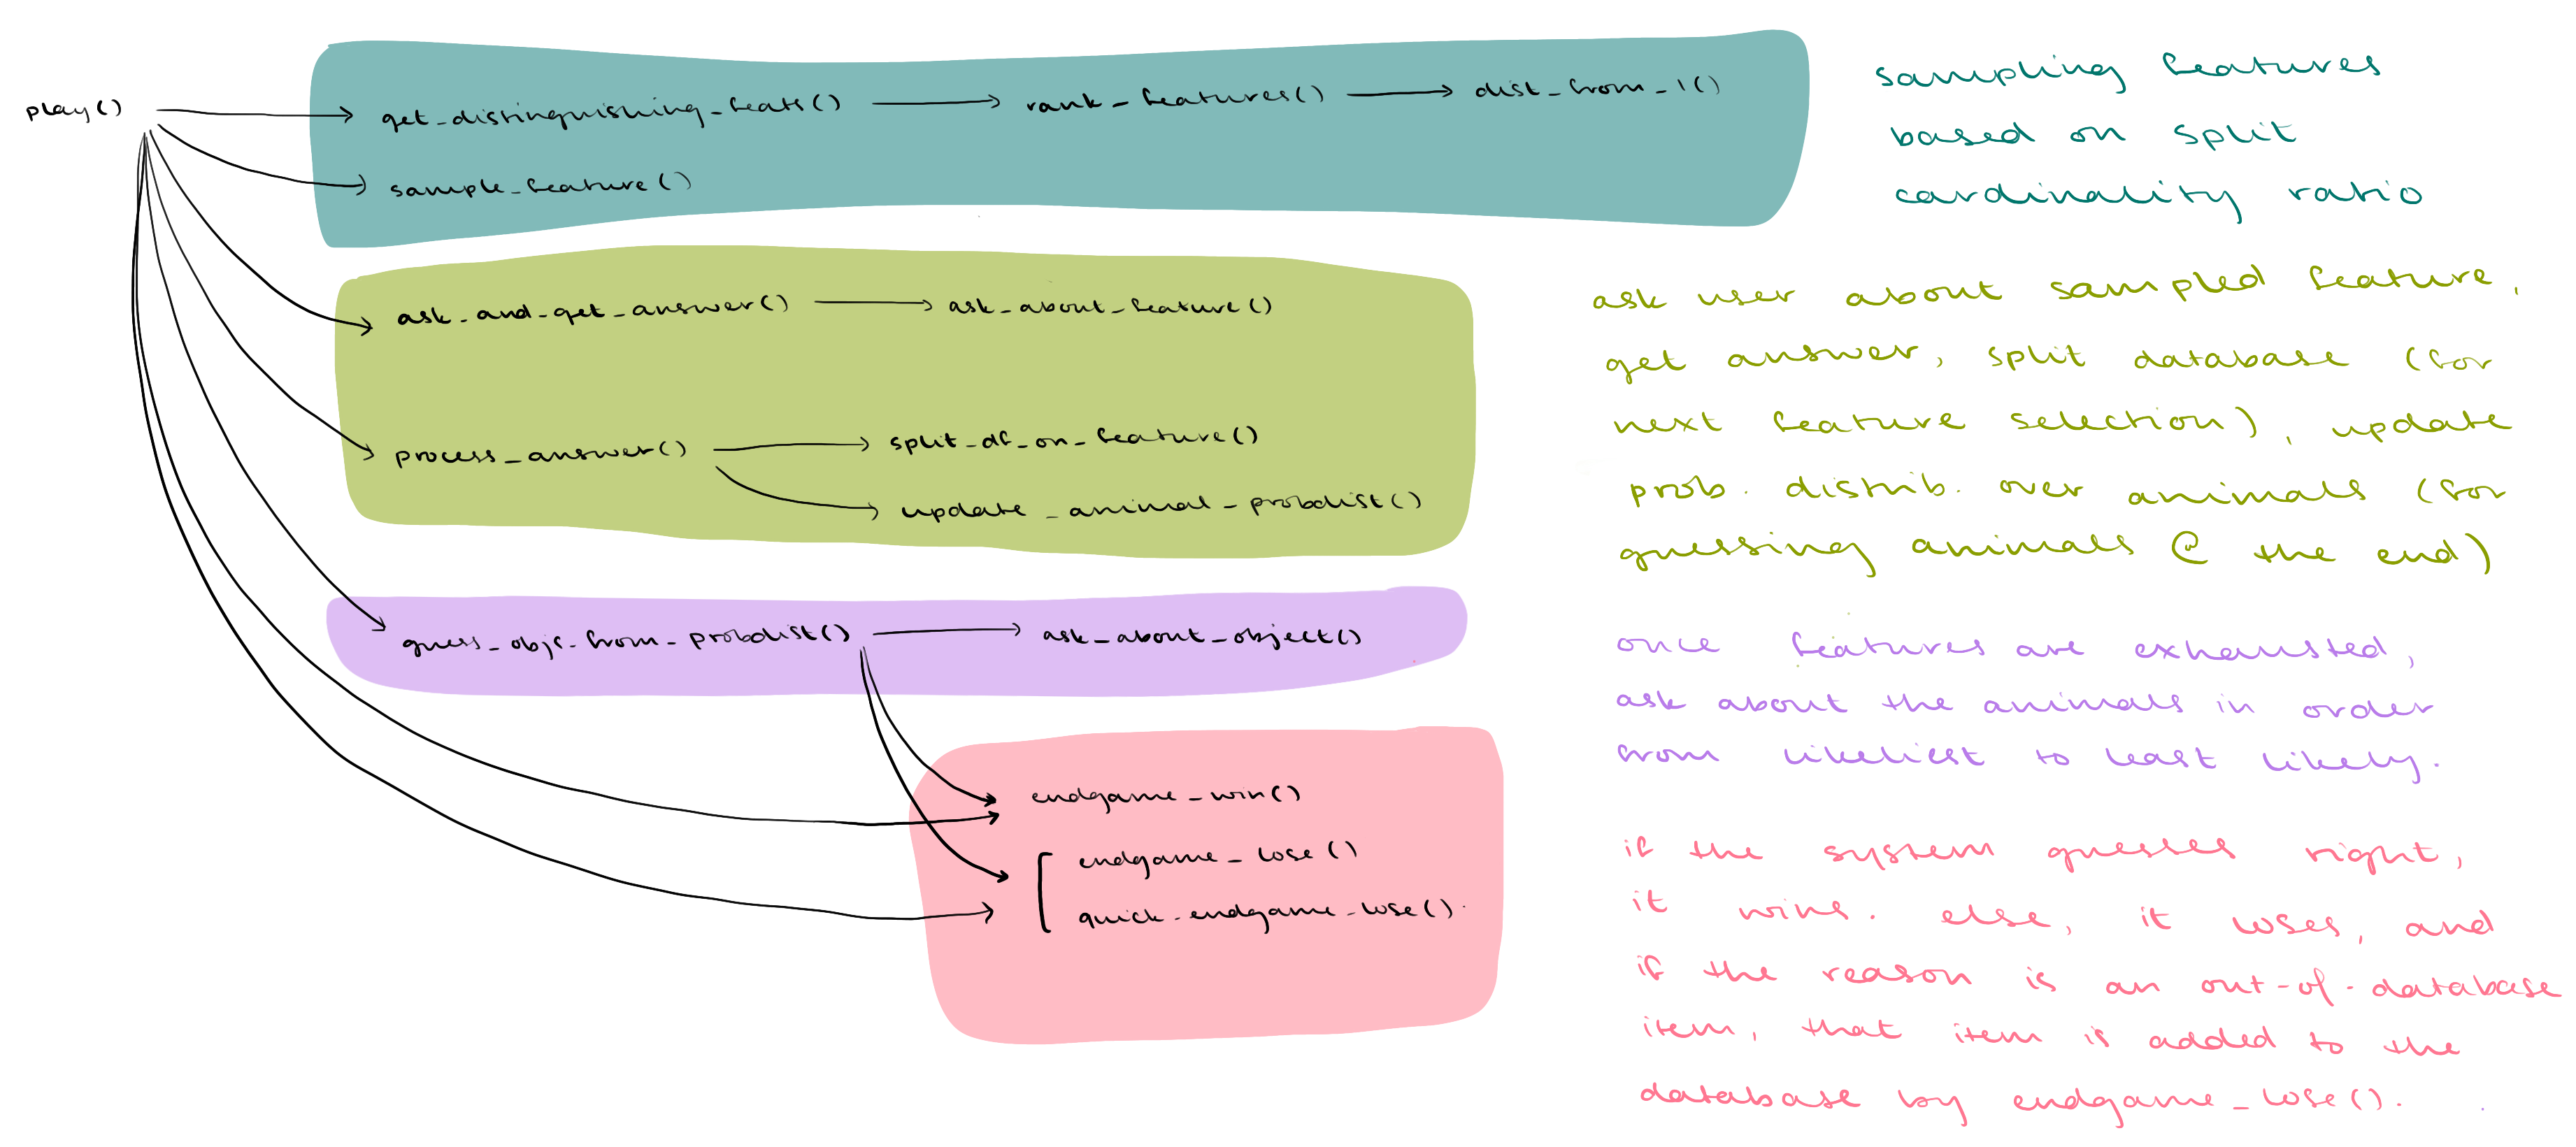 play()
get_distinguishing_feats()
rank_features()
dist_from_1()
sample_feature()
sampling features
based on split
cardinality ratio
ask_and_get_answer()
ask_about_feature()
process_answer()
split_df_on_feature()
update_animal_probdist()
ask user about sampled feature,
get answer, split database (for
next feature selection), update
prob. distrib. over animals (for
guessing animals @ the end)
guess_objs_from_probdist()
ask_about_object()
once features are exhausted,
ask about the animals in order
from likeliest to least likely.
endgame_win()
endgame_lose()
quick_endgame_lose()
if the system guesses right,
it wins. else, it loses, and
if the reason is an out-of-database
item, that item is added to the
database by endgame_lose().